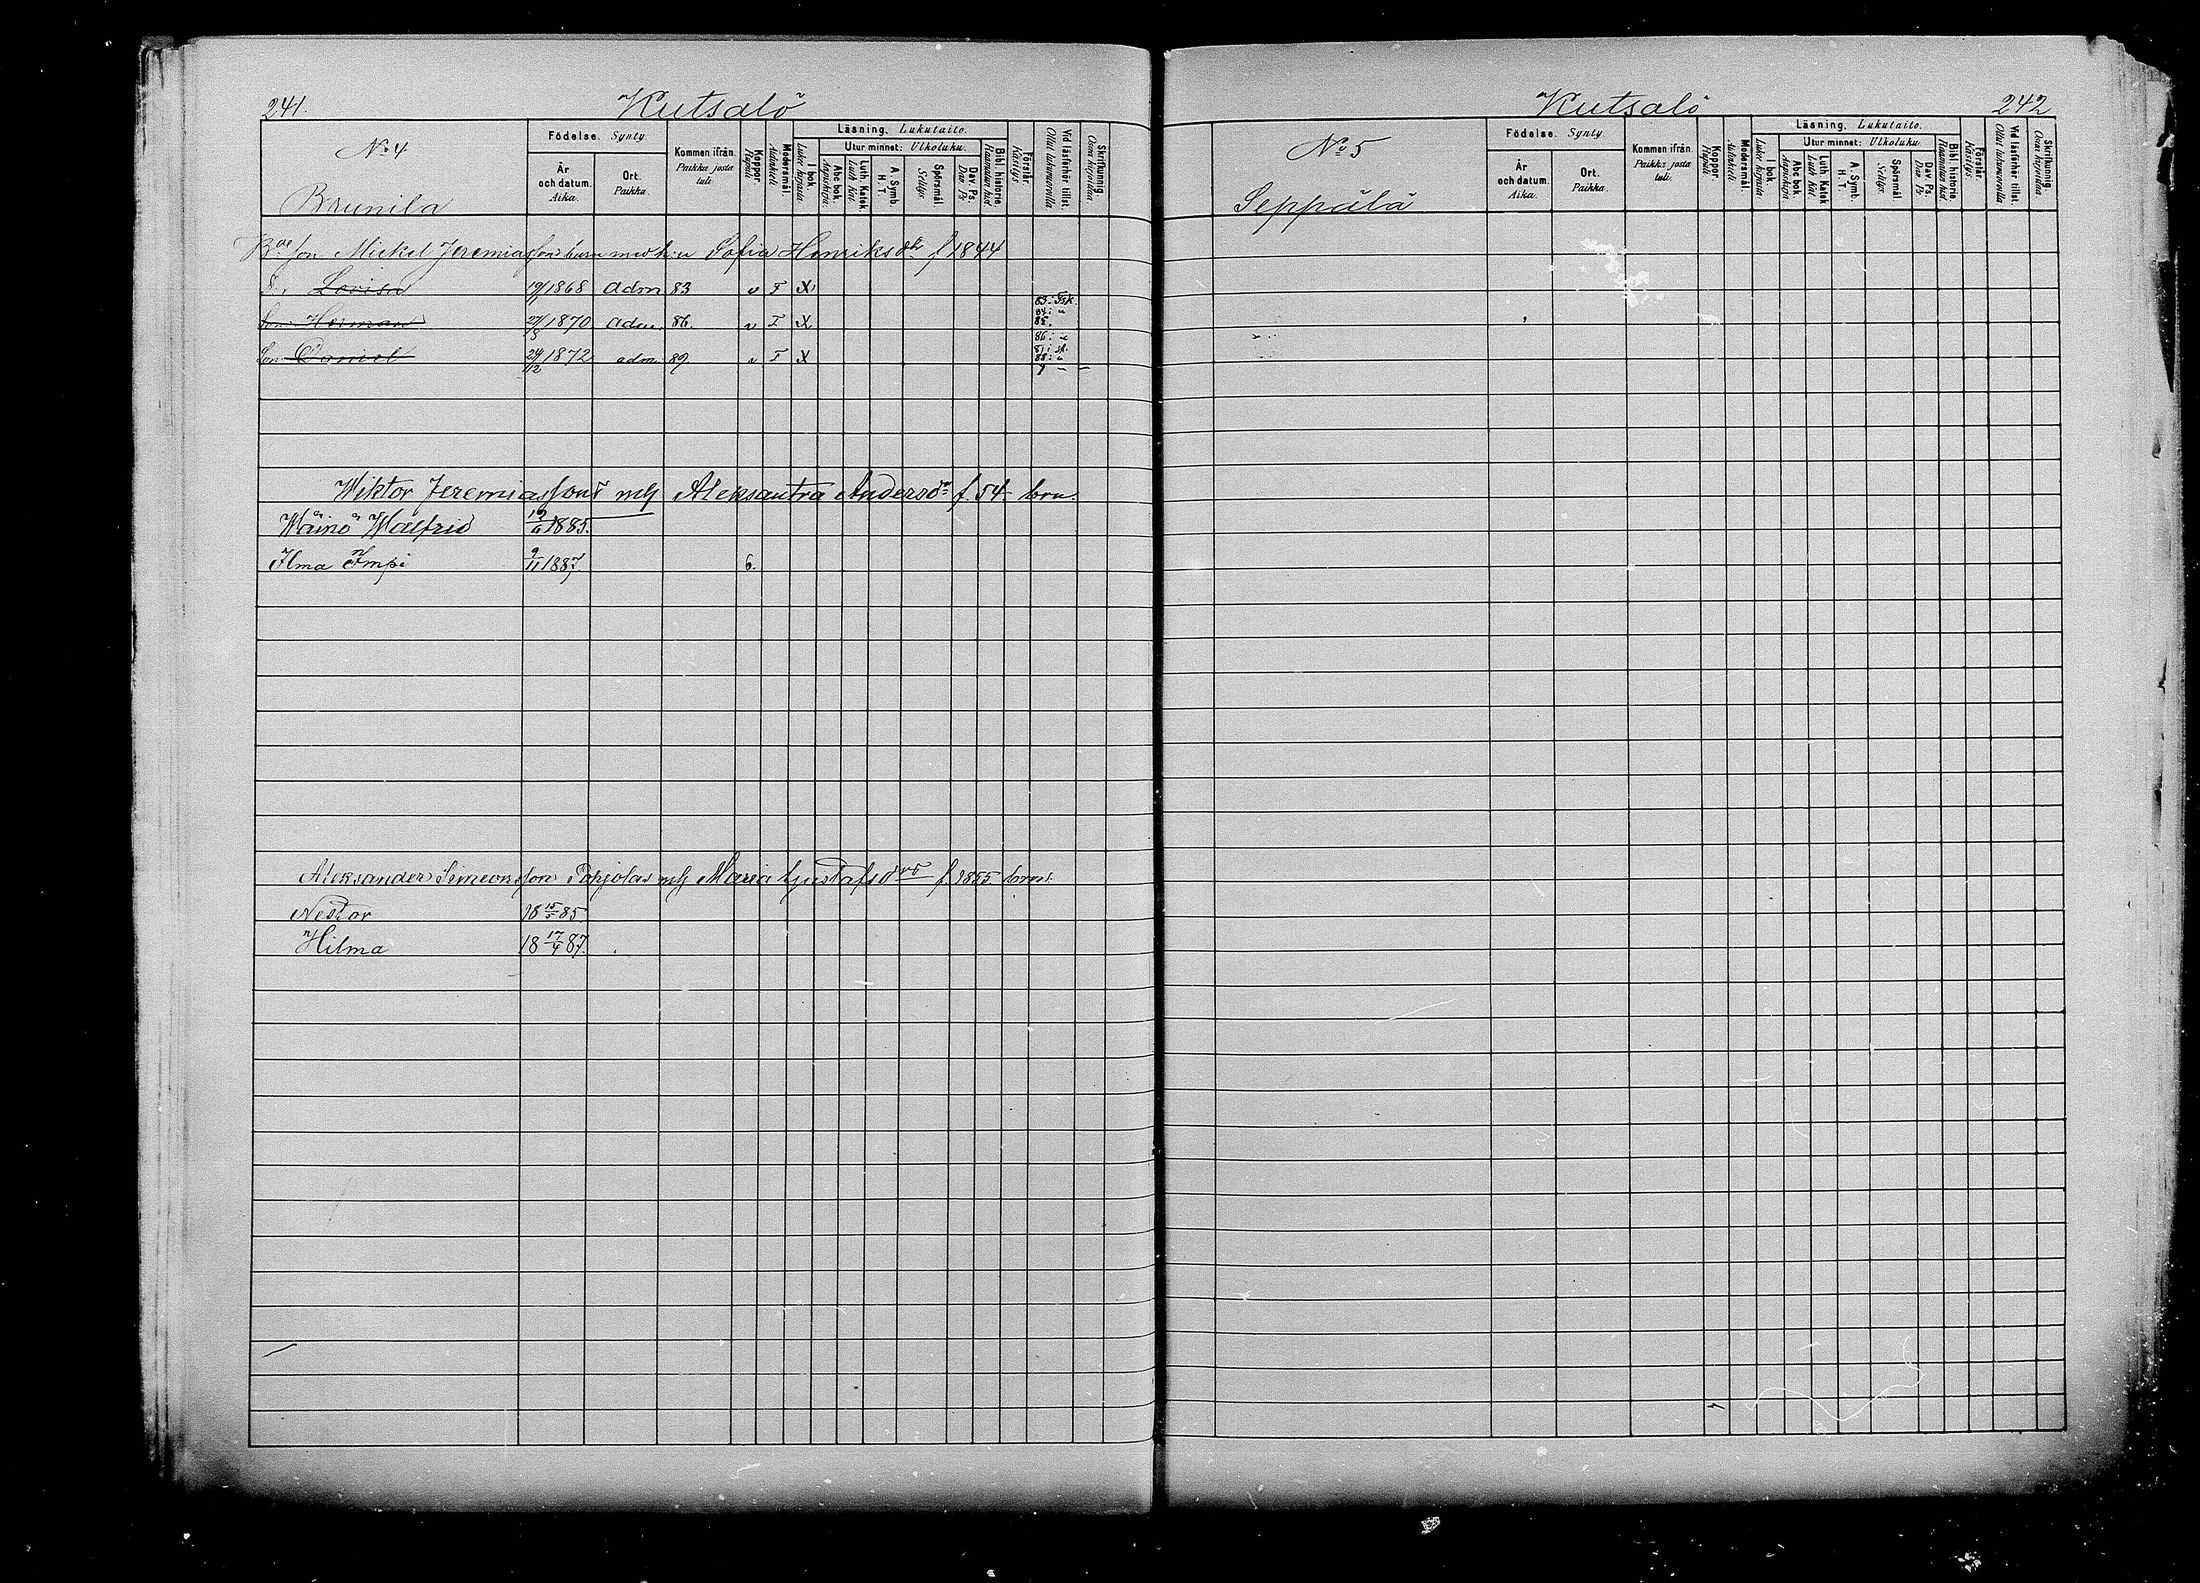 241.
Kutsalö
No 4
Brunila
Födelse. Synty.
År och datum. Aika.
Ort. Paikka.
Kommen ifrån. Paikka josta tuli
Koppor. Rupuli
Modersmål. Äidinkieli
Läsning. Lukutaito.
I bok. Lukee kirjasta
Utur minnet: Ulkoluku.
Abc bok. Aapiskirja.
Luth. Katek. Luth. Kat.
A. Symb. H. T.
Spörsmål Selitys.
Dav. Ps. Dav. Ps
Bibl. historie. Raamatun hist
Förstår. Käsitys.
Vid läsförhör tillst. Ollut lukuvuoroilla
Skrifkunnig. Osaa kirjoittaa
son Mickel Jeremiasson barn med h:u Sofia Henriksdr f 1844
Lovisa 19/1 1868 adm 83 v F X
Son Herman 27/8 1870 Adm. 86. v F X
Son Daniel 24/12 1872 adm. 89. v F X
Wiktor Jeremiassons mh Aleksantra Andersdr f. 54 brn
Wäinö Walfrid 1885.
Ilma Impi 9/11 1887. 6.
Aleksander Simeonsson Pohjolas mh Maria Gustafsdrs f. 1855 brn.
Nestor 18 15/5 85.
Hilma 18 17/4 87.
Kutsalö
242
No 5
Seppälä
Födelse. Synty
År och datum. Aika.
Ort. Paikka.
Kommen ifrån. Paikka josta tuli.
Koppor. Rupuli
Modersmål Äidinkieli
Läsning. Lukutaito.
I bok. Lukee kirjasta
Utur minnet: Ulkoluku.
Abc bok. Aapiskirja
Luth. Katek Luth. Kat.
A. Symb. H. T.
Spörsmål Selitys.
Dav. Ps. Dav. Ps
Bibl. historie Raamatun hist
Förstår. Käsitys.
Vid läsförhör tillst. Ollut lukuvuoroilla
Skrifkunnig. Osaa kirjoittaa.